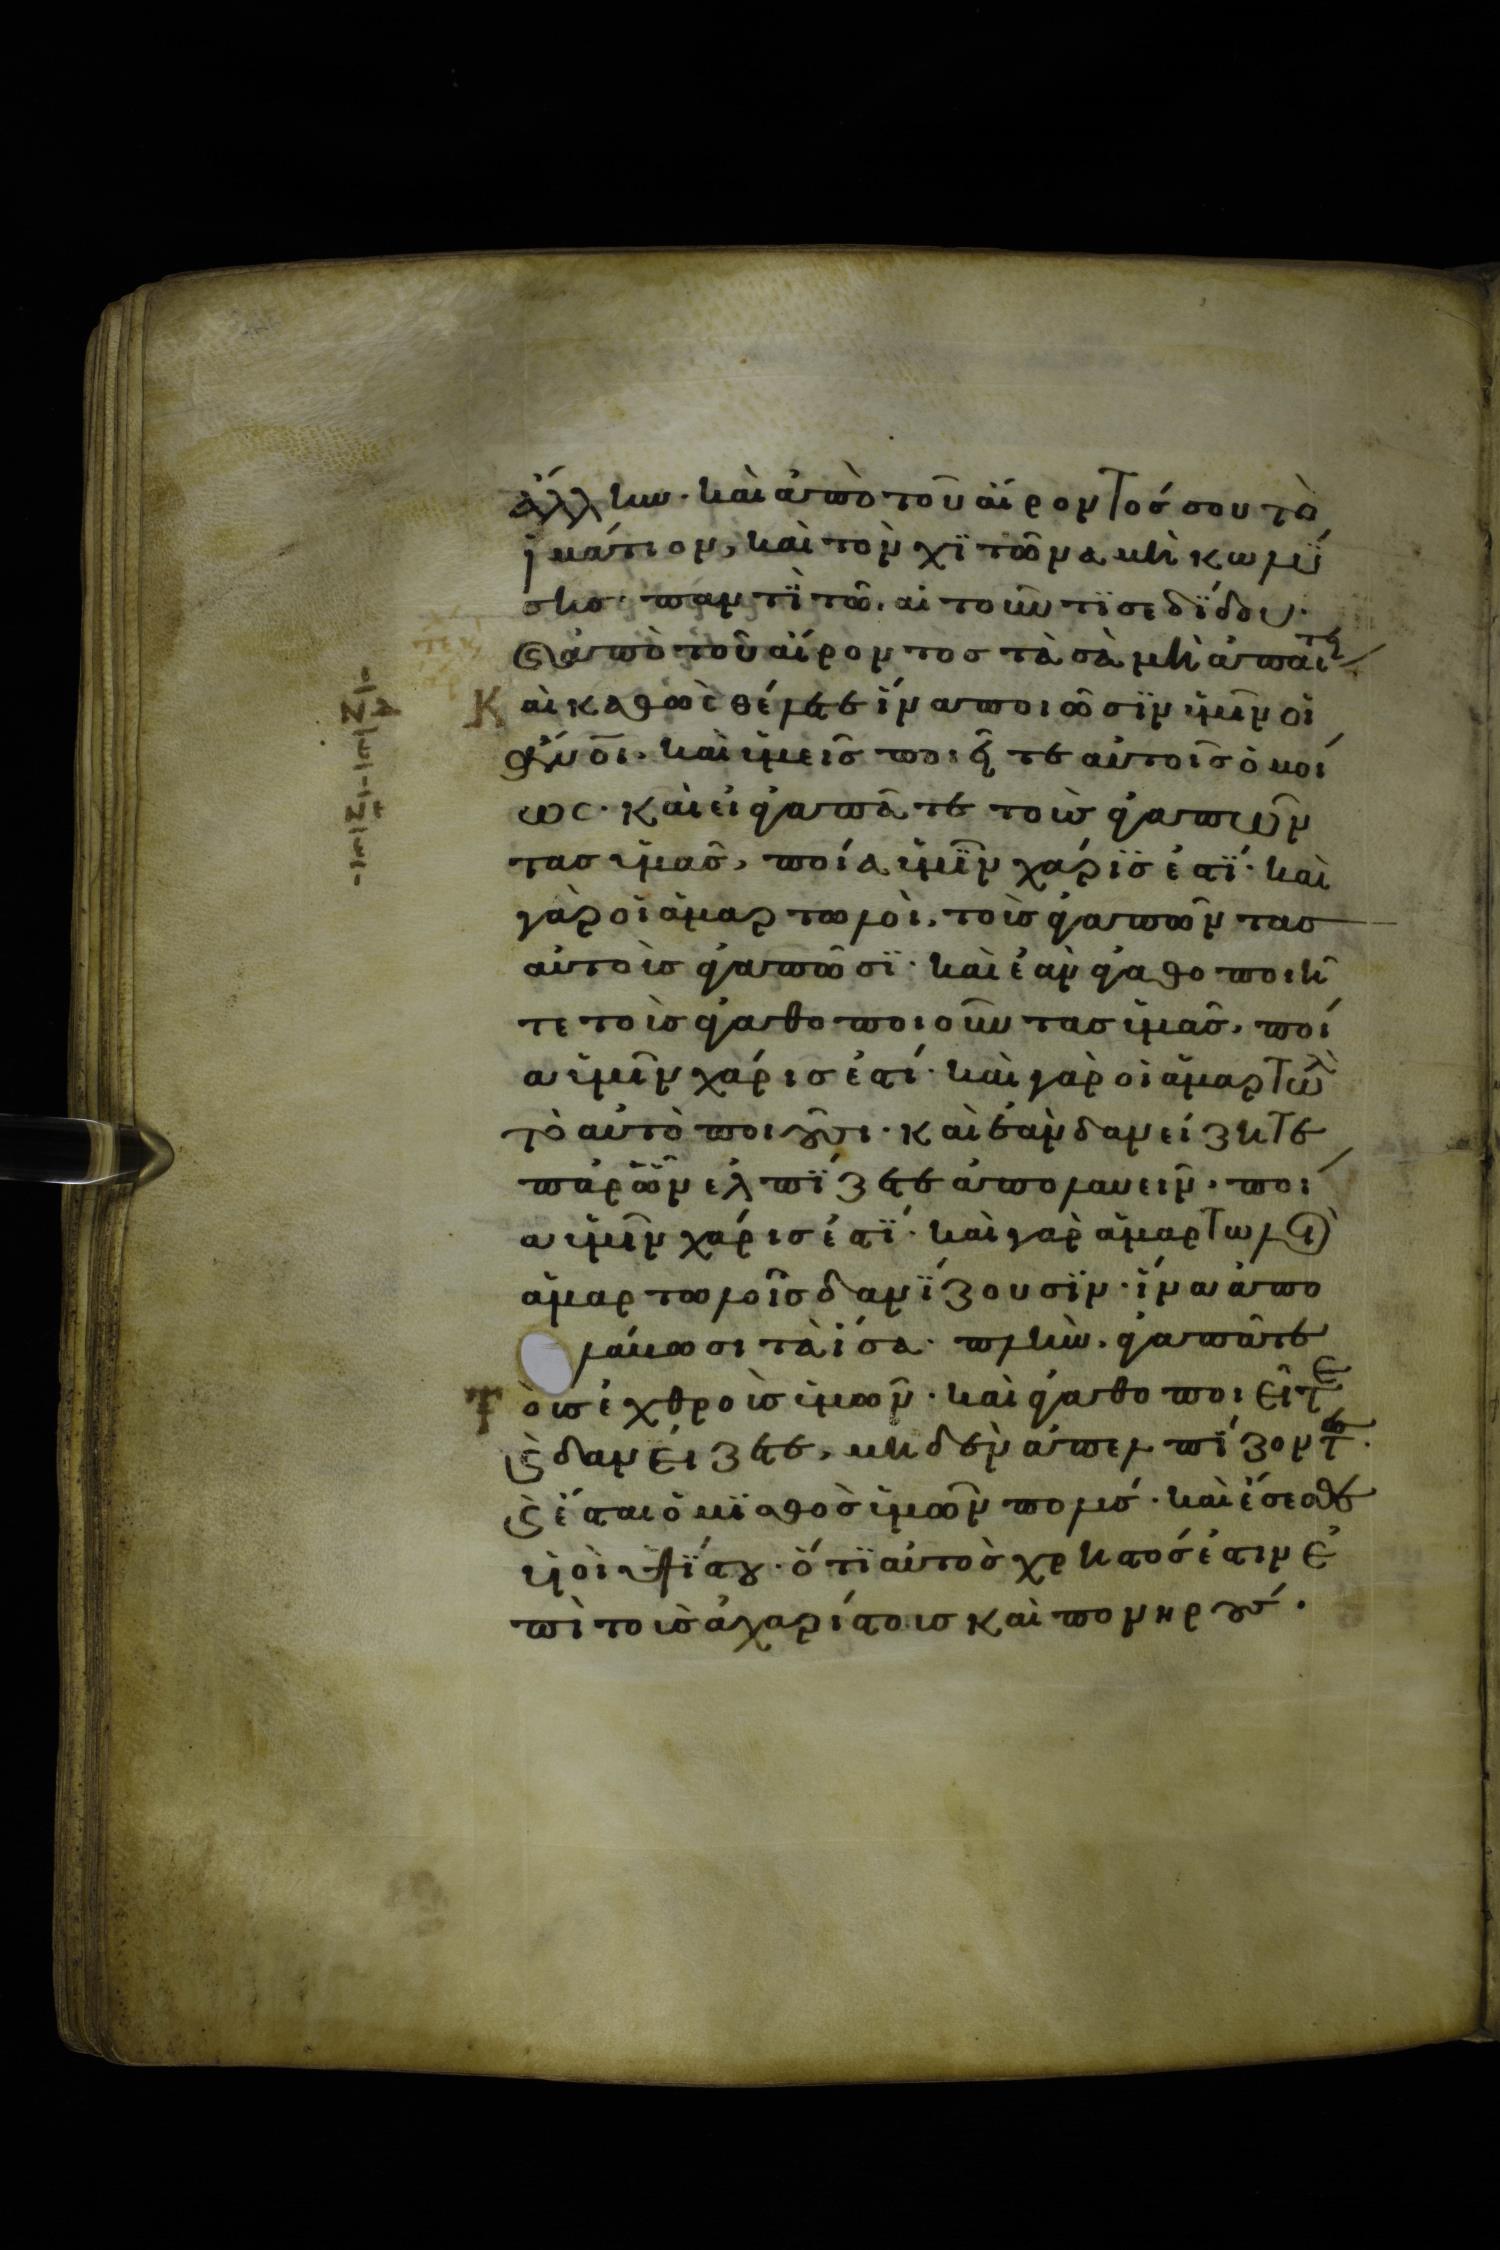 ἄλλην· καὶ ἀπὸ τοῦ αἴροντόσ σου τὸ
ἱμάτιον, καὶ τὸν χϊτῶνα μὴ κωλύ
σησ· παντῒ τῶ αἰτοῦντϊ σε δΐδου·
ϛ ἀπὸ τοῦ αἴροντοσ τὰ σὰ μὴ ἀπαίτει
Καὶ καθὼς θέλετε ἵνα ποιῶσϊν ὑμῖν οἱ
ἄνοι· καὶ ὑμεῖσ ποιῆτε αὐτοῖσ ὁμοί
ως· καὶ εἰ ἀγαπᾶτε τοὺσ ἀγαπῶν
τασ ὑμᾶσ, ποία ὑμῖν χάρϊσ ἐστΐ· καὶ
γὰρ οἱ ἁμαρτωλοὶ, τοὺσ ἀγαπῶντασ
αὐτοὺσ ἀγαπῶσϊ· καὶ ἐὰν ἀγαθοποιῆ
τε τοὺσ ἀγαθοποιοῦντασ ὑμᾶσ, ποί
α ὑμῖν χάρισ ἐστί· καὶ γὰρ οἱ ἁμαρτωλ
τὸ αὐτὸ ποιοῦσι· καὶ ἐὰν δανείζητε
παρ ὧν ἐλπΐζετε ἀπολαυεῖν· ποί
α ὑμῖν χάρισ ἐστΐ· καὶ γὰρ ἁμαρτωλοὶ
ἁμαρτωλοῖσ δανΐζουσϊν· ἵνα ἀπο
λάυωσι τὰ ἴσα· πλὴν, ἀγαπᾶτε
Τοὺσ ἐχθροὺσ ὑμῶν· καὶ ἀγαθοποιεῖτε
ϛ δανείζετε, μηδὲν ἀπελπίζοντες·
ϛ ἔσται ὁ μϊσθὸσ ὑμῶν πολύσ· καὶ ἔσεσθε
υἱοὶ ὑψΐστου· ὅτϊ αὐτὸσ χρηστόσ ἐστιν ἐ
πὶ τοὺσ ἀχαρίστουσ καὶ πονηρούσ·